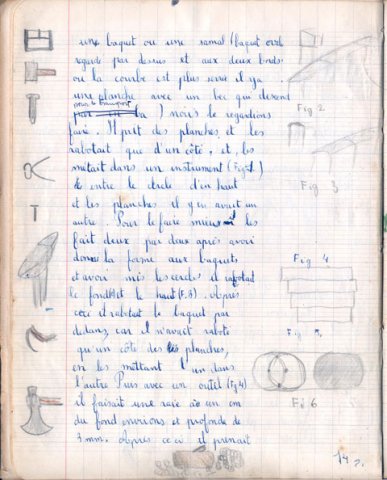 une baquet ou une samal (baquet ovale
regarde par dessus et aux deux bords
ou la courbe est plus serrée il y a
une planche avec un bec qui descend
pour le transport
nois le regardions
faire. Il prit des planches et les
rabotait que d'un côté, et les
mettait dans un instrument (Fig 1)
entre le cercle d'en haut
et les planches il y en avait un
autre. Pour le faire mieux il les
fait deux par deux après avoir
donné la forme aux baquets
et avoir mis les cercles il rabotait
le fond et le haut (F.3). Après
ceci il rabotait le baquet par
dedans, car il n'avait raboté
qu'un côté des planches,
en les mettant l'un dans
l'autre Puis avec un outil (Fig 4)
il faisait une raie à un cm
du fond environs et profonde de
3 mm. Après ceci il prenait
Fig 2
Fig 3
Fig 4
Fig 5
Fig 6